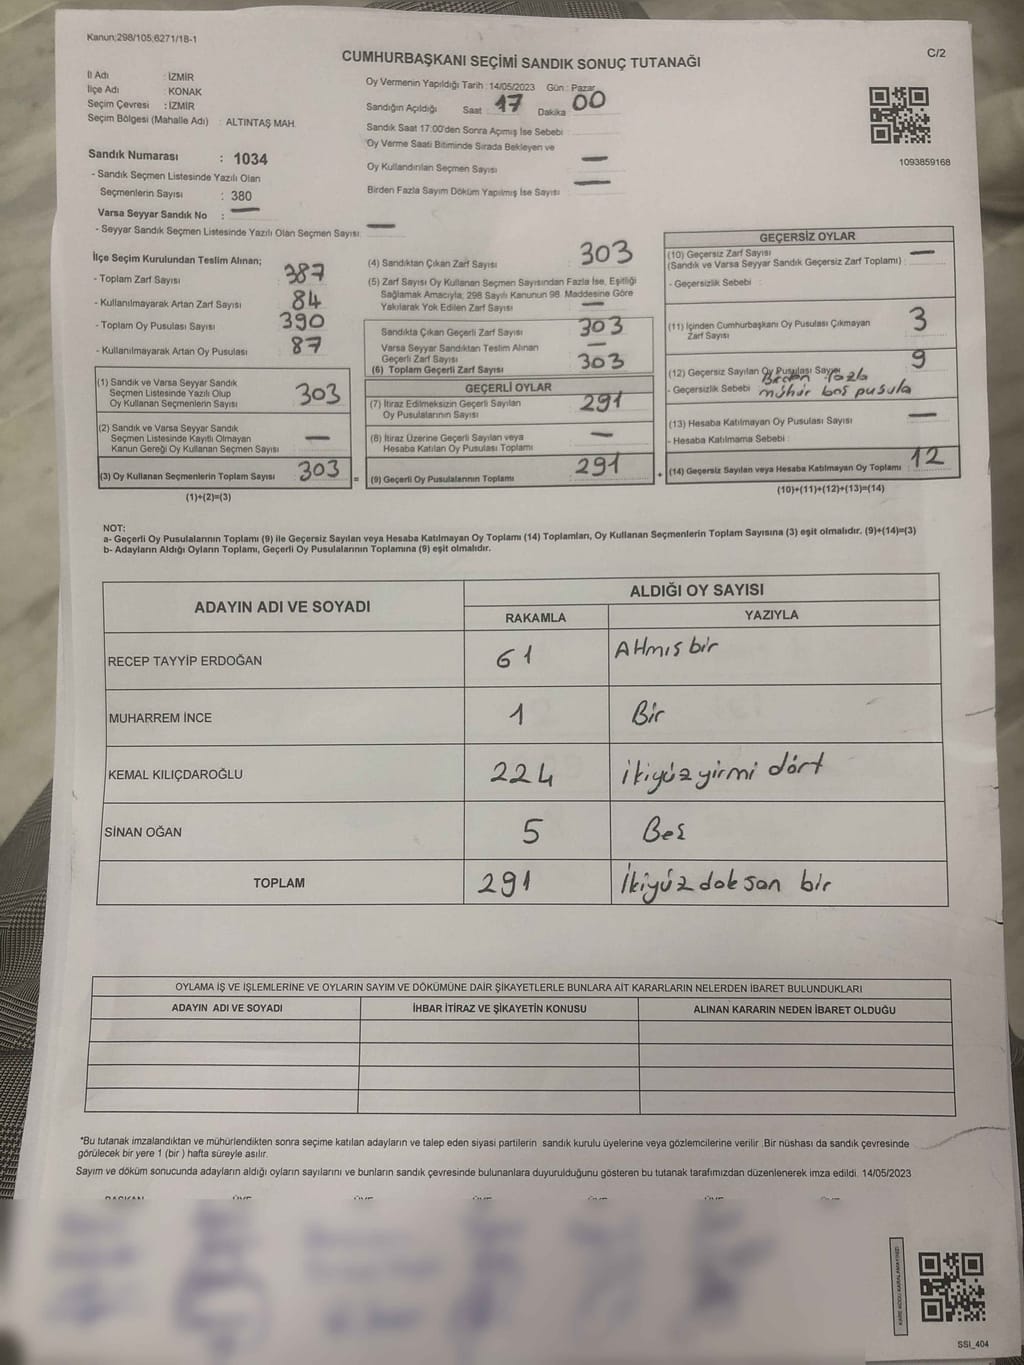 Kanun;298/105;6271/18-1
C/2
CUMHURBAŞKANI SEÇİMİ SANDIK SONUÇ TUTANAĞI
İl Adı : İZMİR
İlçe Adı : KONAK
Seçim Çevresi : İZMİR
Seçim Bölgesi (Mahalle Adı) : ALTINTAŞ MAH.
Oy Vermenin Yapıldığı Tarih : 14/05/2023 Gün : Pazar
Sandığın Açıldığı Saat : 17 Dakika 00
Sandık Saat 17:00'den Sonra Açımış İse Sebebi :
Oy Verme Saati Bitiminde Sırada Bekleyen ve
Oy Kullandırılan Seçmen Sayısı —
Birden Fazla Sayım Döküm Yapılmış İse Sayısı —
1093859168
Sandık Numarası : 1034
- Sandık Seçmen Listesinde Yazılı Olan
Seçmenlerin Sayısı : 380
Varsa Seyyar Sandık No : —
- Seyyar Sandık Seçmen Listesinde Yazılı Olan Seçmen Sayısı: —
İlçe Seçim Kurulundan Teslim Alınan;
- Toplam Zarf Sayısı 387
- Kullanılmayarak Artan Zarf Sayısı 84
- Toplam Oy Pusulası Sayısı 390
- Kullanılmayarak Artan Oy Pusulası 87
(1) Sandık ve Varsa Seyyar Sandık
Seçmen Listesinde Yazılı Olup
Oy Kullanan Seçmenlerin Sayısı 303
(2) Sandık ve Varsa Seyyar Sandık
Seçmen Listesinde Kayıtlı Olmayan
Kanun Gereği Oy Kullanan Seçmen Sayısı —
(3) Oy Kullanan Seçmenlerin Toplam Sayısı 303
(1)+(2)=(3)
=
(4) Sandıktan Çıkan Zarf Sayısı 303
(5) Zarf Sayısı Oy Kullanan Seçmen Sayısından Fazla İse, Eşitliği
Sağlamak Amacıyla, 298 Sayılı Kanunun 98. Maddesine Göre
Yakılarak Yok Edilen Zarf Sayısı —
Sandıkta Çıkan Geçerli Zarf Sayısı 303
Varsa Seyyar Sandıktan Teslim Alınan
Geçerli Zarf Sayısı —
(6) Toplam Geçerli Zarf Sayısı 303
GEÇERLİ OYLAR
(7) İtiraz Edilmeksizin Geçerli Sayılan
Oy Pusulalarının Sayısı 291
(8) İtiraz Üzerine Geçerli Sayılan veya
Hesaba Katılan Oy Pusulası Toplamı —
(9) Geçerli Oy Pusulalarının Toplamı 291
+
GEÇERSİZ OYLAR
(10) Geçersiz Zarf Sayısı
(Sandık ve Varsa Seyyar Sandık Geçersiz Zarf Toplamı) : —
- Geçersizlik Sebebi :
(11) İçinden Cumhurbaşkanı Oy Pusulası Çıkmayan
Zarf Sayısı 3
(12) Geçersiz Sayılan Oy Pusulası Sayısı 9
- Geçersizlik Sebebi Birden fazla
mühür boş pusula
(13) Hesaba Katılmayan Oy Pusulası Sayısı —
- Hesaba Katılmama Sebebi :
(14) Geçersiz Sayılan veya Hesaba Katılmayan Oy Toplamı 12
(10)+(11)+(12)+(13)=(14)
NOT:
a- Geçerli Oy Pusulalarının Toplamı (9) ile Geçersiz Sayılan veya Hesaba Katılmayan Oy Toplamı (14) Toplamları, Oy Kullanan Seçmenlerin Toplam Sayısına (3) eşit olmalıdır. (9)+(14)=(3)
b- Adayların Aldığı Oyların Toplamı, Geçerli Oy Pusulalarının Toplamına (9) eşit olmalıdır.
ADAYIN ADI VE SOYADI
ALDIĞI OY SAYISI
RAKAMLA
YAZIYLA
RECEP TAYYİP ERDOĞAN 61 Altmış bir
MUHARREM İNCE 1 Bir
KEMAL KILIÇDAROĞLU 224 ikiyüzyirmi dört
SİNAN OĞAN 5 Beş
TOPLAM 291 İkiyüz doksan bir
OYLAMA İŞ VE İŞLEMLERİNE VE OYLARIN SAYIM VE DÖKÜMÜNE DAİR ŞİKAYETLERLE BUNLARA AİT KARARLARIN NELERDEN İBARET BULUNDUKLARI
ADAYIN ADI VE SOYADI
İHBAR İTİRAZ VE ŞİKAYETİN KONUSU
ALINAN KARARIN NEDEN İBARET OLDUĞU
*Bu tutanak imzalandıktan ve mühürlendikten sonra seçime katılan adayların ve talep eden siyasi partilerin sandık kurulu üyelerine veya gözlemcilerine verilir. Bir nüshası da sandık çevresinde
görülecek bir yere 1 (bir ) hafta süreyle asılır.
Sayım ve döküm sonucunda adayların aldığı oyların sayılarını ve bunların sandık çevresinde bulunanlara duyurulduğunu gösteren bu tutanak tarafımızdan düzenlenerek imza edildi. 14/05/2023
SSI_404